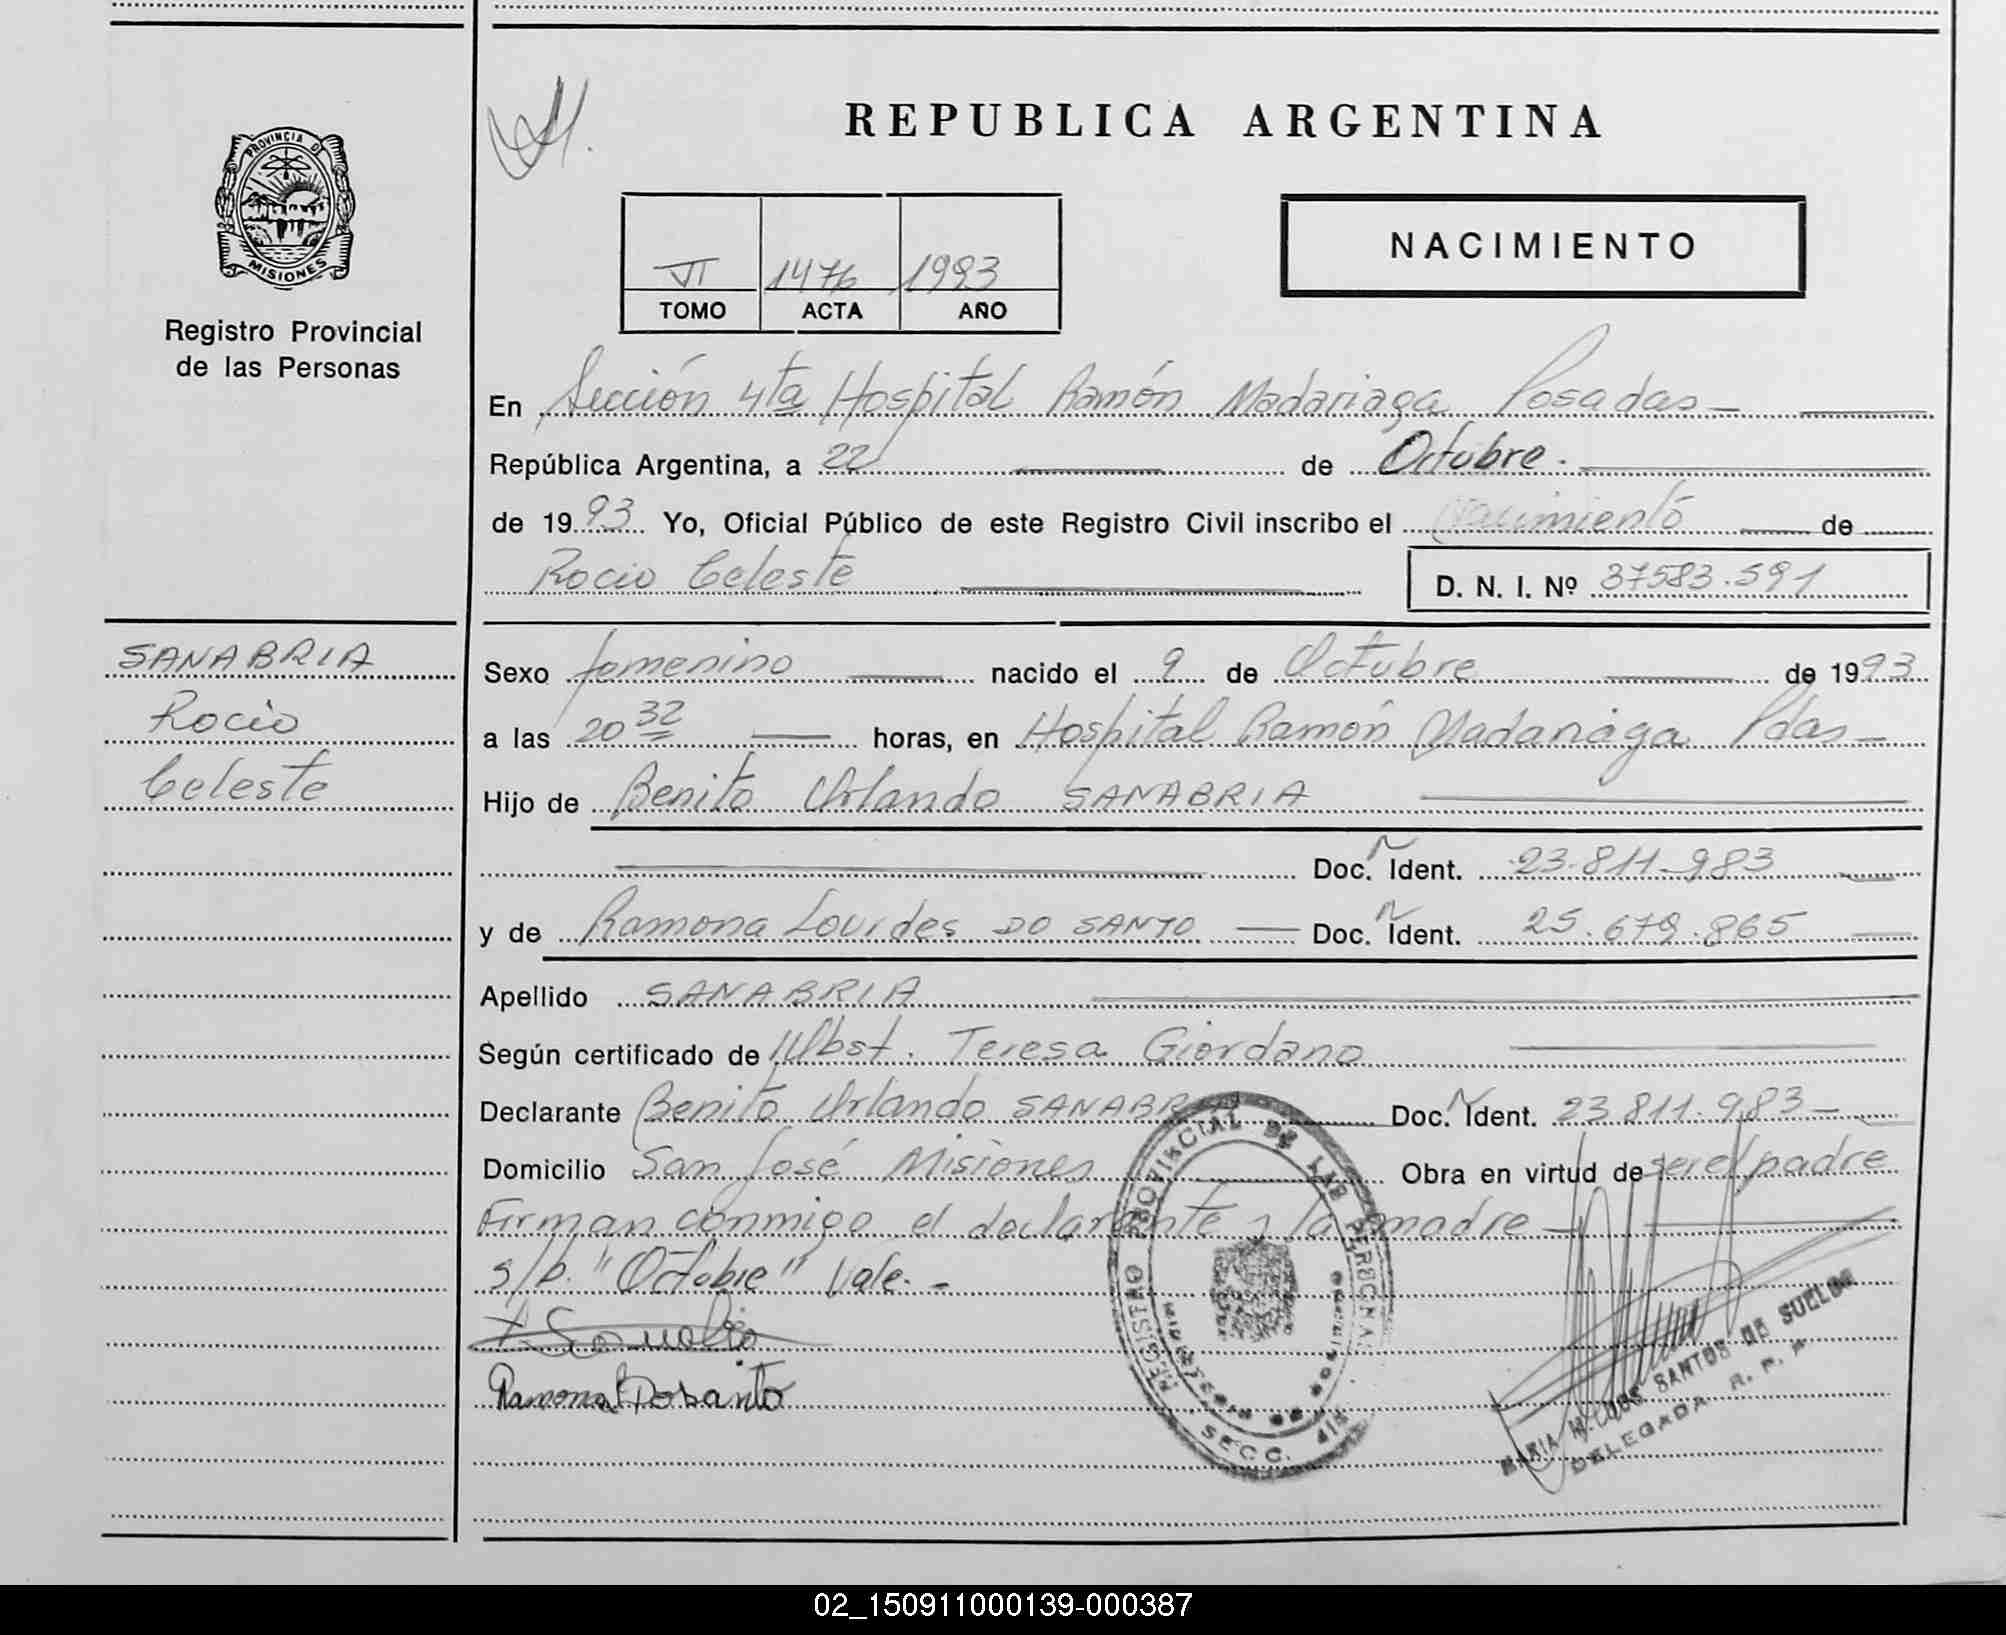 PROVINCIA D
MISIONES
Registro Provincial
de las Personas
REPUBLICA ARGENTINA
VI 1476 1993
TOMO ACTA AÑO
NACIMIENTO
En Sección 4ta Hospital Ramón Madariaga Posadas
República Argentina, a 22 de Octubre.
de 1993 Yo, Oficial Público de este Registro Civil inscribo el Nacimiento de
Rocio Celeste D. N. I. Nº 37583.591
SANABRIA
Rocio
Celeste
Sexo femenino nacido el 9 de Octubre de 1993
a las 20 32 horas, en Hospital Ramón Madariaga Pdas
Hijo de Benito Orlando SANABRIA
Doc. Ident. 23.811.983
y de Ramona Lourdes DO SANTO Doc. Ident. 25.679.865
Apellido SANABRIA
Según certificado de Obst. Teresa Giordano
Declarante Benito Orlando SANABRIA Doc. Ident. 23.811.983
Domicilio San José Misiones Obra en virtud de ser el padre
Firman conmigo el declarante y la madre
s/b. "Octubre" Vale.
Ramona Dosanto
REGISTRO PROVINCIAL DE LAS PERSONAS
SECC. 4ta
MARIA SANTOS DE SUELDO
DELEGADA R. P. P.
02_150911000139-000387